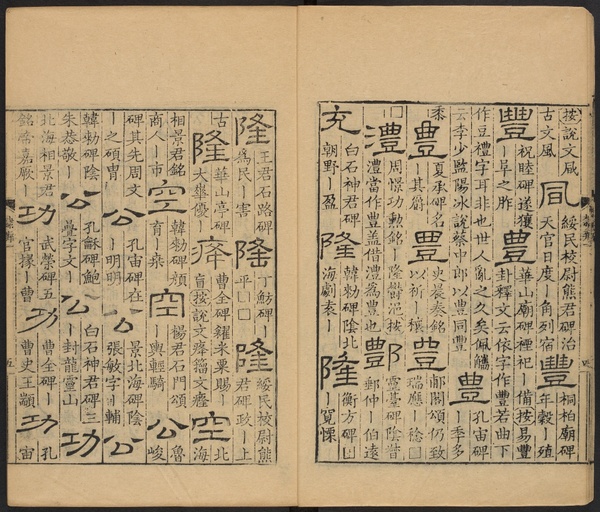 按說文凬
古文風
凮
綏民校尉熊君碑治
天官日度丨角列宿
豐
桐柏廟碑
年穀丨殖
豐
祝睦碑遂獲
丨阜之胙
豊
華山廟碑禋祀丨備按易豐
卦釋文云依字作豐若曲下
作豆禮字耳非也世人亂之久矣佩觿
云李少監陽冰說蔡中郎以豊同豐
豊
孔宙碑
丨季多
黍
豊
夏承碑名
丨其爵
豊
史晨奏銘
以祈丨穰
豊
郙閣頌仍致
瑞應丨稔□
□
灃
周憬功勲銘丨隆鬱浥按
灃當作豐盖借灃為豐也
酆
靈臺碑陰昔
郵仲丨伯遠
充
白石神君碑
朝野丨盈
隆
韓勑碑陰北
海劇袁丨
隆
衡方碑凵
丨寬慄
隆
王君石路碑
為民丨害
隆
丁魴碑丨
平□□
隆
綏民校尉熊
君碑政丨上
古
隆
華山亭碑
大舉優丨
癃
曹全碑糴米粟賜丨
盲按說文癃籒文𤸇
空
北
海
相景君銘
商人丨市
空
韓勑碑頟
育丨桒
空
楊君石門頌
丨輿輕騎
公
魯
峻
碑其先周文
丨之碩冑
公
孔宙碑在
丨明明
公
景北海碑陰
張敏字丨輔
公
韓勑碑陰
朱恭敬丨
公
孔龢碑鮑
疊字文丨
公
白石神君碑三
丨封龍靈山
功
北海相景君
銘喬嘉厥丨
功
武榮碑五
官掾丨曹
功
曹全碑丨
曹史王顓
功
孔
宙